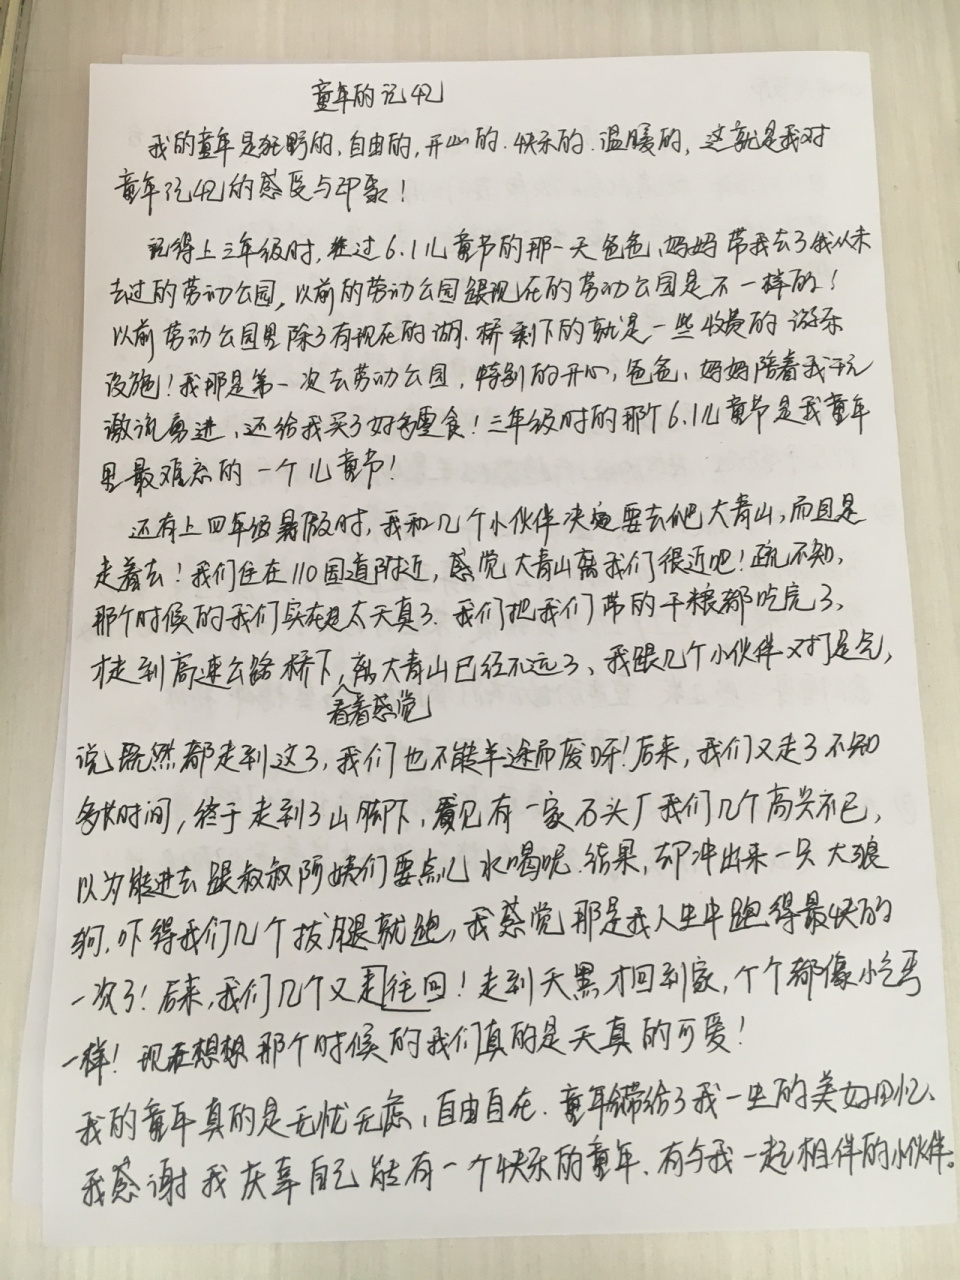 童年的记忆
我的童年是狂野的,自由的,开心的、快乐的、温暖的,这就是我对
童年记忆的感受与印象!
记得上三年级时,在过6.1儿童节的那一天爸爸、妈妈带我去了我从未
去过的劳动公园,以前的劳动公园跟现在的劳动公园是不一样的!
以前劳动公园里除了有现在的湖、桥剩下的就是一些收费的游乐
设施!我那是第一次去劳动公园,特别的开心,爸爸、妈妈陪着我玩
激流勇进、还给我买了好多零食!三年级时的那个6.1儿童节是我童年
里最难忘的一个儿童节!
还有上四年级暑假时,我和几个小伙伴决定要去爬大青山,而且是
走着去!我们住在110国道附近,感觉大青山离我们很近吧!疏不知,
那个时候的我们实在是太天真了、我们把我们带的干粮都吃完了、
才走到高速公路桥下,看着感觉离大青山已经不远了、我跟几个小伙伴又打足气,
说既然都走到这了,我们也不能半途而废呀!后来,我们又走了不知
多长时间,终于走到了山脚下,看见有一家石头厂我们几个高兴不已,
以为能进去跟叔叔阿姨们要点儿水喝呢、结果,却冲出来一只大狼
狗,吓得我们几个拔腿就跑,我感觉那是我人生中跑得最快的
一次了!后来,我们几个又走往回!走到天黑才回到家,个个都像小乞丐
一样!现在想想那个时候的我们真的是天真的可爱!
我的童年真的是无忧无虑、自由自在、童年带给了我一生的美好回忆、
我感谢我庆幸自己能有一个快乐的童年、有与我一起相伴的小伙伴。